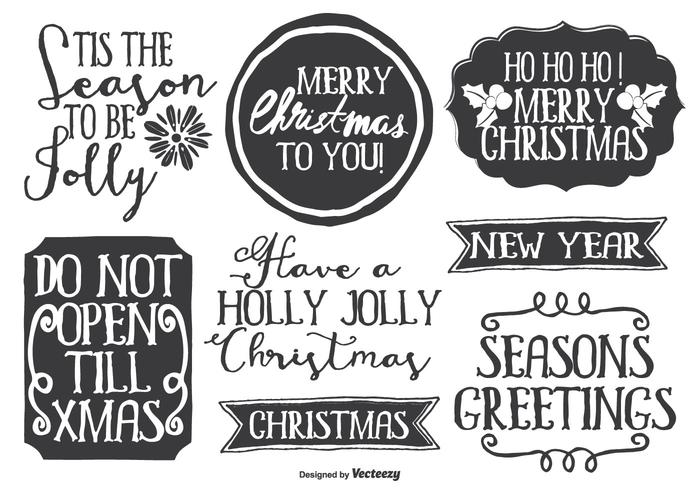 'TIS THE
Season
TO BE
Jolly
MERRY
Christmas
TO YOU!
HO HO HO!
MERRY
CHRISTMAS
DO NOT
OPEN
TILL
XMAS
Have a
HOLLY JOLLY
Christmas
NEW YEAR
CHRISTMAS
SEASONS
GREETINGS
Designed by Vecteezy